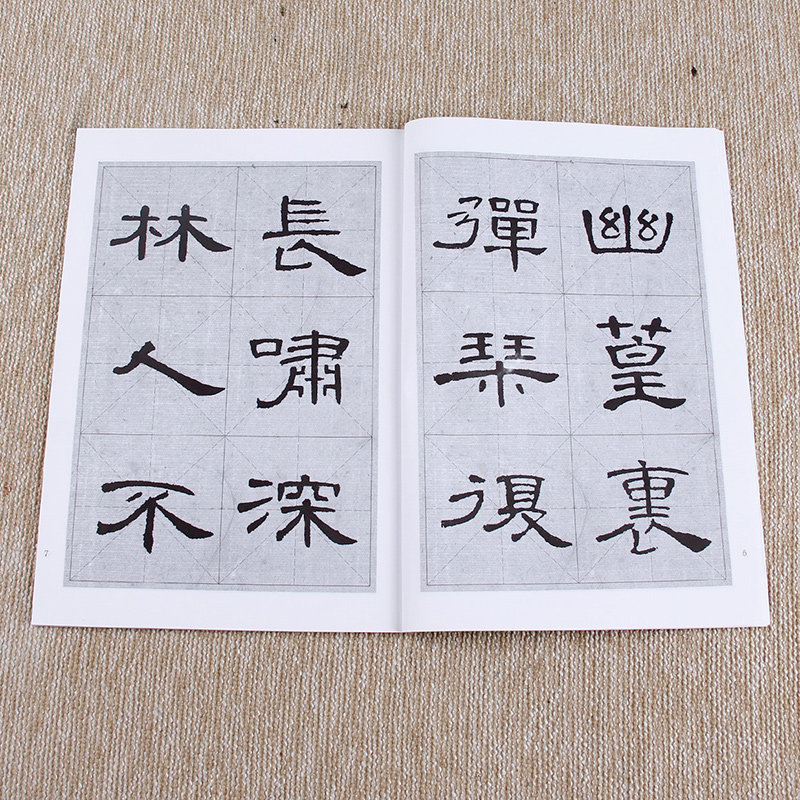 幽篁裏
彈琹復
長嘯深
林人不
7